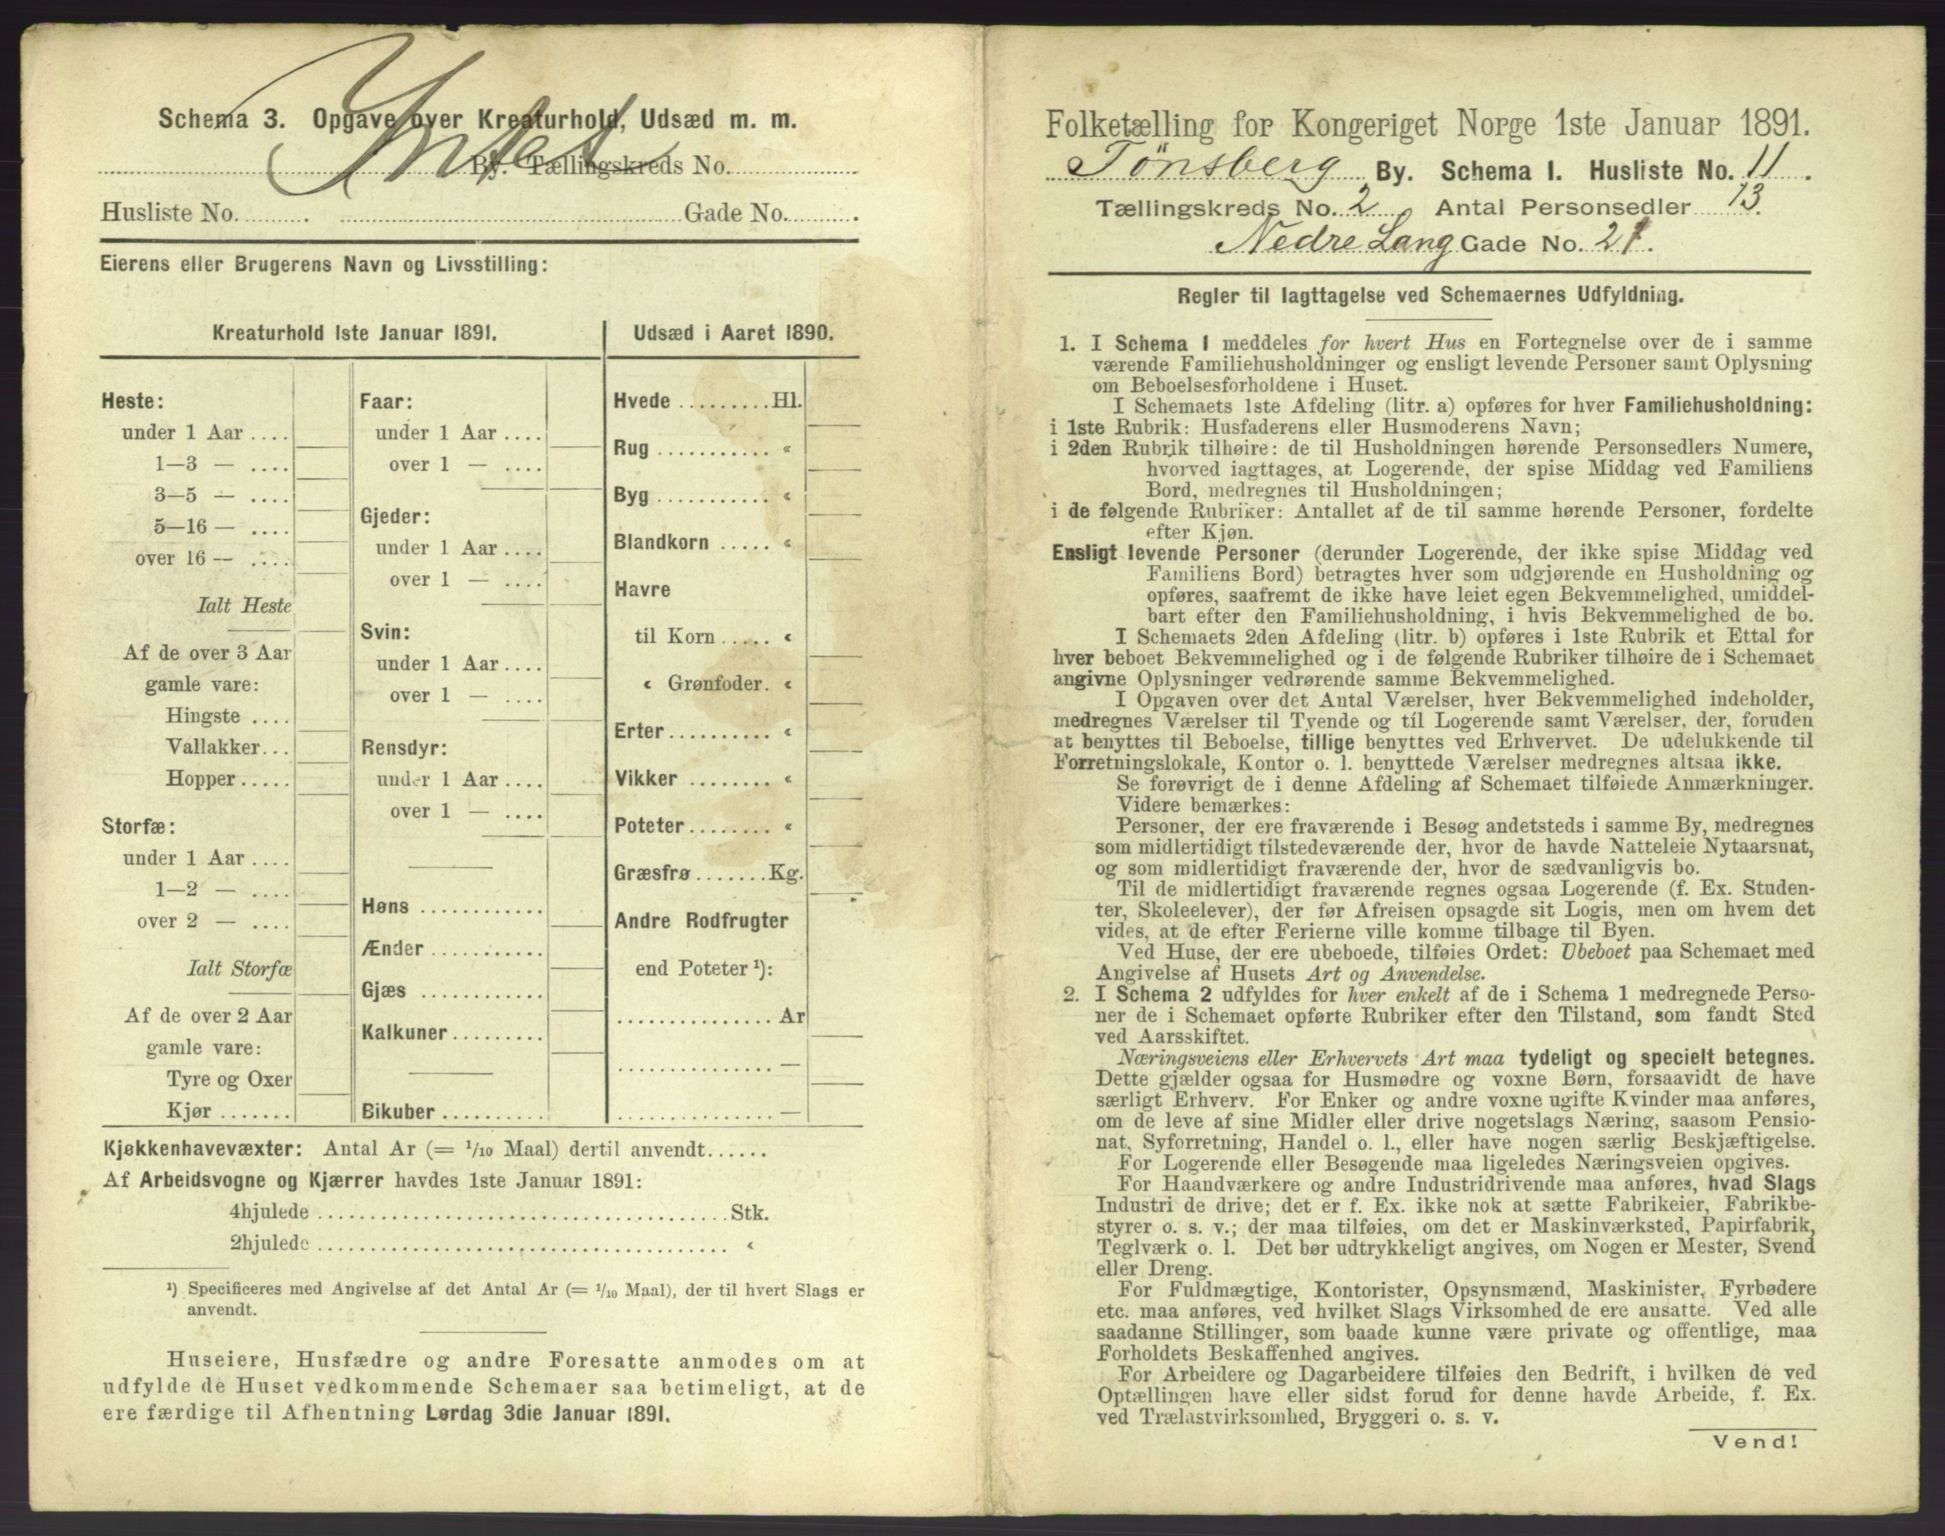 Schema 3. Opgave over Kreaturhold, Udsæd m. m.
Intet
By. Tællingskreds No.
Husliste No. Gade No.
Eierens eller Brugerens Navn og Livsstilling:
Kreaturhold 1ste Januar 1891.
Heste:
under 1 Aar ....
1—3 — ....
3—5 — ....
5—16 — ....
over 16 — ....
Ialt Heste
Af de over 3 Aar
gamle vare:
Hingste ....
Vallakker...
Hopper.....
Storfæ:
under 1 Aar ....
1—2 — ....
over 2 — ....
Ialt Storfæ
Af de over 2 Aar
gamle vare:
Tyre og Oxer
Kjør.......
Faar:
under 1 Aar ....
over 1 — ....
Gjeder:
under 1 Aar ....
over 1 — ....
Svin:
under 1 Aar ....
over 1 — ....
Rensdyr:
under 1 Aar ....
over 1 — ....
Høns ............
Ænder ...........
Gjæs ............
Kalkuner.........
Bikuber..........
Udsæd i Aaret 1890.
Hvede .........Hl.
Rug ........... «
Byg ........... «
Blandkorn ..... «
Havre
til Korn ..... «
« Grønfoder. «
Erter.......... «
Vikker ........ «
Poteter........ «
Græsfrø .......Kg.
Andre Rodfrugter
end Poteter ¹):
............... Ar
............... —
............... —
Kjøkkenhavevæxter: Antal Ar (= 1/10 Maal) dertil anvendt......
Af Arbeidsvogne og Kjærrer havdes 1ste Januar 1891:
4hjulede ........................................Stk.
2hjulede ........................................ «
¹) Specificeres med Angivelse af det Antal Ar (= 1/10 Maal), der til hvert Slags er
anvendt.
Huseiere, Husfædre og andre Foresatte anmodes om at
udfylde de Huset vedkommende Schemaer saa betimeligt, at de
ere færdige til Afhentning Lørdag 3die Januar 1891.
Folketælling for Kongeriget Norge 1ste Januar 1891.
Tønsberg By. Schema 1. Husliste No. 11.
Tællingskreds No. 2 Antal Personsedler 13.
Nedre Lang Gade No. 21.
Regler til Iagttagelse ved Schemaernes Udfyldning.
1. I Schema 1 meddeles for hvert Hus en Fortegnelse over de i samme
værende Familiehusholdninger og ensligt levende Personer samt Oplysning
om Beboelsesforholdene i Huset.
I Schemaets 1ste Afdeling (litr. a) opføres for hver Familiehusholdning:
i 1ste Rubrik: Husfaderens eller Husmoderens Navn;
i 2den Rubrik tilhøire: de til Husholdningen hørende Personsedlers Numere,
hvorved iagttages, at Logerende, der spise Middag ved Familiens
Bord, medregnes til Husholdningen;
i de følgende Rubriker: Antallet af de til samme hørende Personer, fordelte
efter Kjøn.
Ensligt levende Personer (derunder Logerende, der ikke spise Middag ved
Familiens Bord) betragtes hver som udgjørende en Husholdning og
opføres, saafremt de ikke have leiet egen Bekvemmelighed, umiddel-
bart efter den Familiehusholdning, i hvis Bekvemmelighed de bo.
I Schemaets 2den Afdeling (litr. b) opføres i 1ste Rubrik et Ettal for
hver beboet Bekvemmelighed og i de følgende Rubriker tilhøire de i Schemaet
angivne Oplysninger vedrørende samme Bekvemmelighed.
I Opgaven over det Antal Værelser, hver Bekvemmelighed indeholder,
medregnes Værelser til Tyende og til Logerende samt Værelser, der, foruden
at benyttes til Beboelse, tillige benyttes ved Erhvervet. De udelukkende til
Forretningslokale, Kontor o. l. benyttede Værelser medregnes altsaa ikke.
Se forøvrigt de i denne Afdeling af Schemaet tilføiede Anmærkninger.
Videre bemærkes:
Personer, der ere fraværende i Besøg andetsteds i samme By, medregnes
som midlertidigt tilstedeværende der, hvor de havde Natteleie Nytaarsnat,
og som midlertidigt fraværende der, hvor de sædvanligvis bo.
Til de midlertidigt fraværende regnes ogsaa Logerende (f. Ex. Studen-
ter, Skoleelever), der før Afreisen opsagde sit Logis, men om hvem det
vides, at de efter Ferierne ville komme tilbage til Byen.
Ved Huse, der ere ubeboede, tilføies Ordet: Ubeboet paa Schemaet med
Angivelse af Husets Art og Anvendelse.
2. I Schema 2 udfyldes for hver enkelt af de i Schema 1 medregnede Perso-
ner de i Schemaet opførte Rubriker efter den Tilstand, som fandt Sted
ved Aarsskiftet.
Næringsveiens eller Erhvervets Art maa tydeligt og specielt betegnes.
Dette gjælder ogsaa for Husmødre og voxne Børn, forsaavidt de have
særligt Erhverv. For Enker og andre voxne ugifte Kvinder maa anføres,
om de leve af sine Midler eller drive nogetslags Næring, saasom Pensio-
nat, Syforretning, Handel o. l., eller have nogen særlig Beskjæftigelse.
For Logerende eller Besøgende maa ligeledes Næringsveien opgives.
For Haandværkere og andre Industridrivende maa anføres, hvad Slags
Industri de drive; det er f. Ex. ikke nok at sætte Fabrikeier, Fabrikbe-
styrer o. s. v.; der maa tilføies, om det er Maskinværksted, Papirfabrik,
Teglværk o. l. Det bør udtrykkeligt angives, om Nogen er Mester, Svend
eller Dreng.
For Fuldmægtige, Kontorister, Opsynsmænd, Maskinister, Fyrbødere
etc. maa anføres, ved hvilket Slags Virksomhed de ere ansatte. Ved alle
saadanne Stillinger, som baade kunne være private og offentlige, maa
Forholdets Beskaffenhed angives.
For Arbeidere og Dagarbeidere tilføies den Bedrift, i hvilken de ved
Optællingen have eller sidst forud for denne havde Arbeide, f. Ex.
ved Trælastvirksomhed, Bryggeri o. s. v.
Vend!